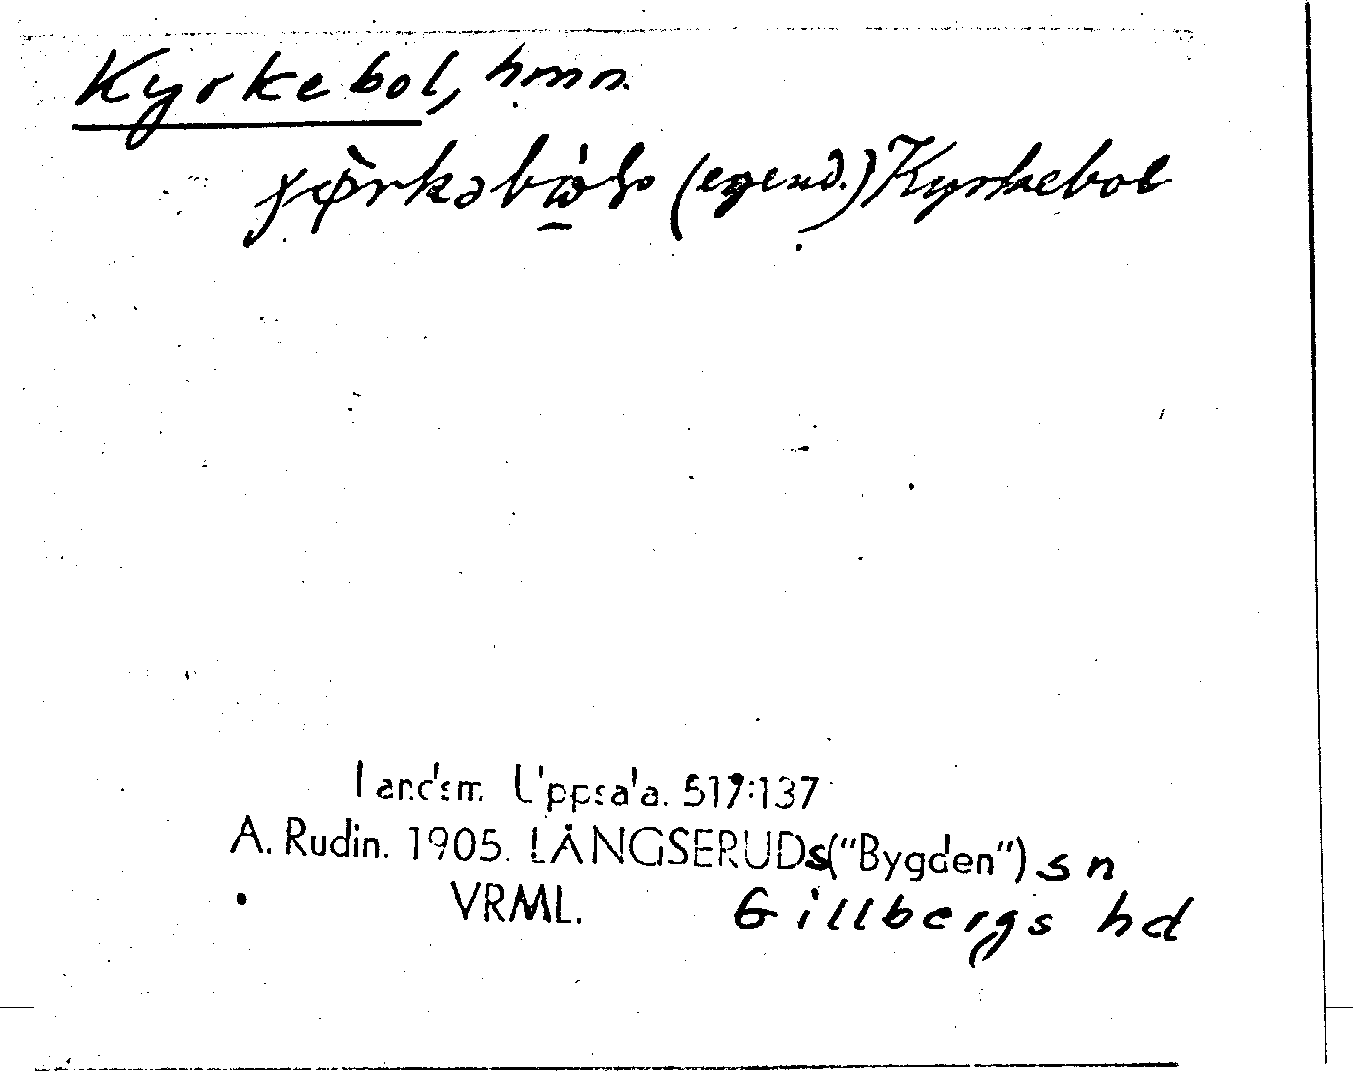 Kyrkebol, hmn.
(egend.) Kyrkebol
Landsm. Uppsala. 517:137
A. Rudin. 1905. LÅNGSERUDs ("Bygden") sn
VRML. Gillbergs hd